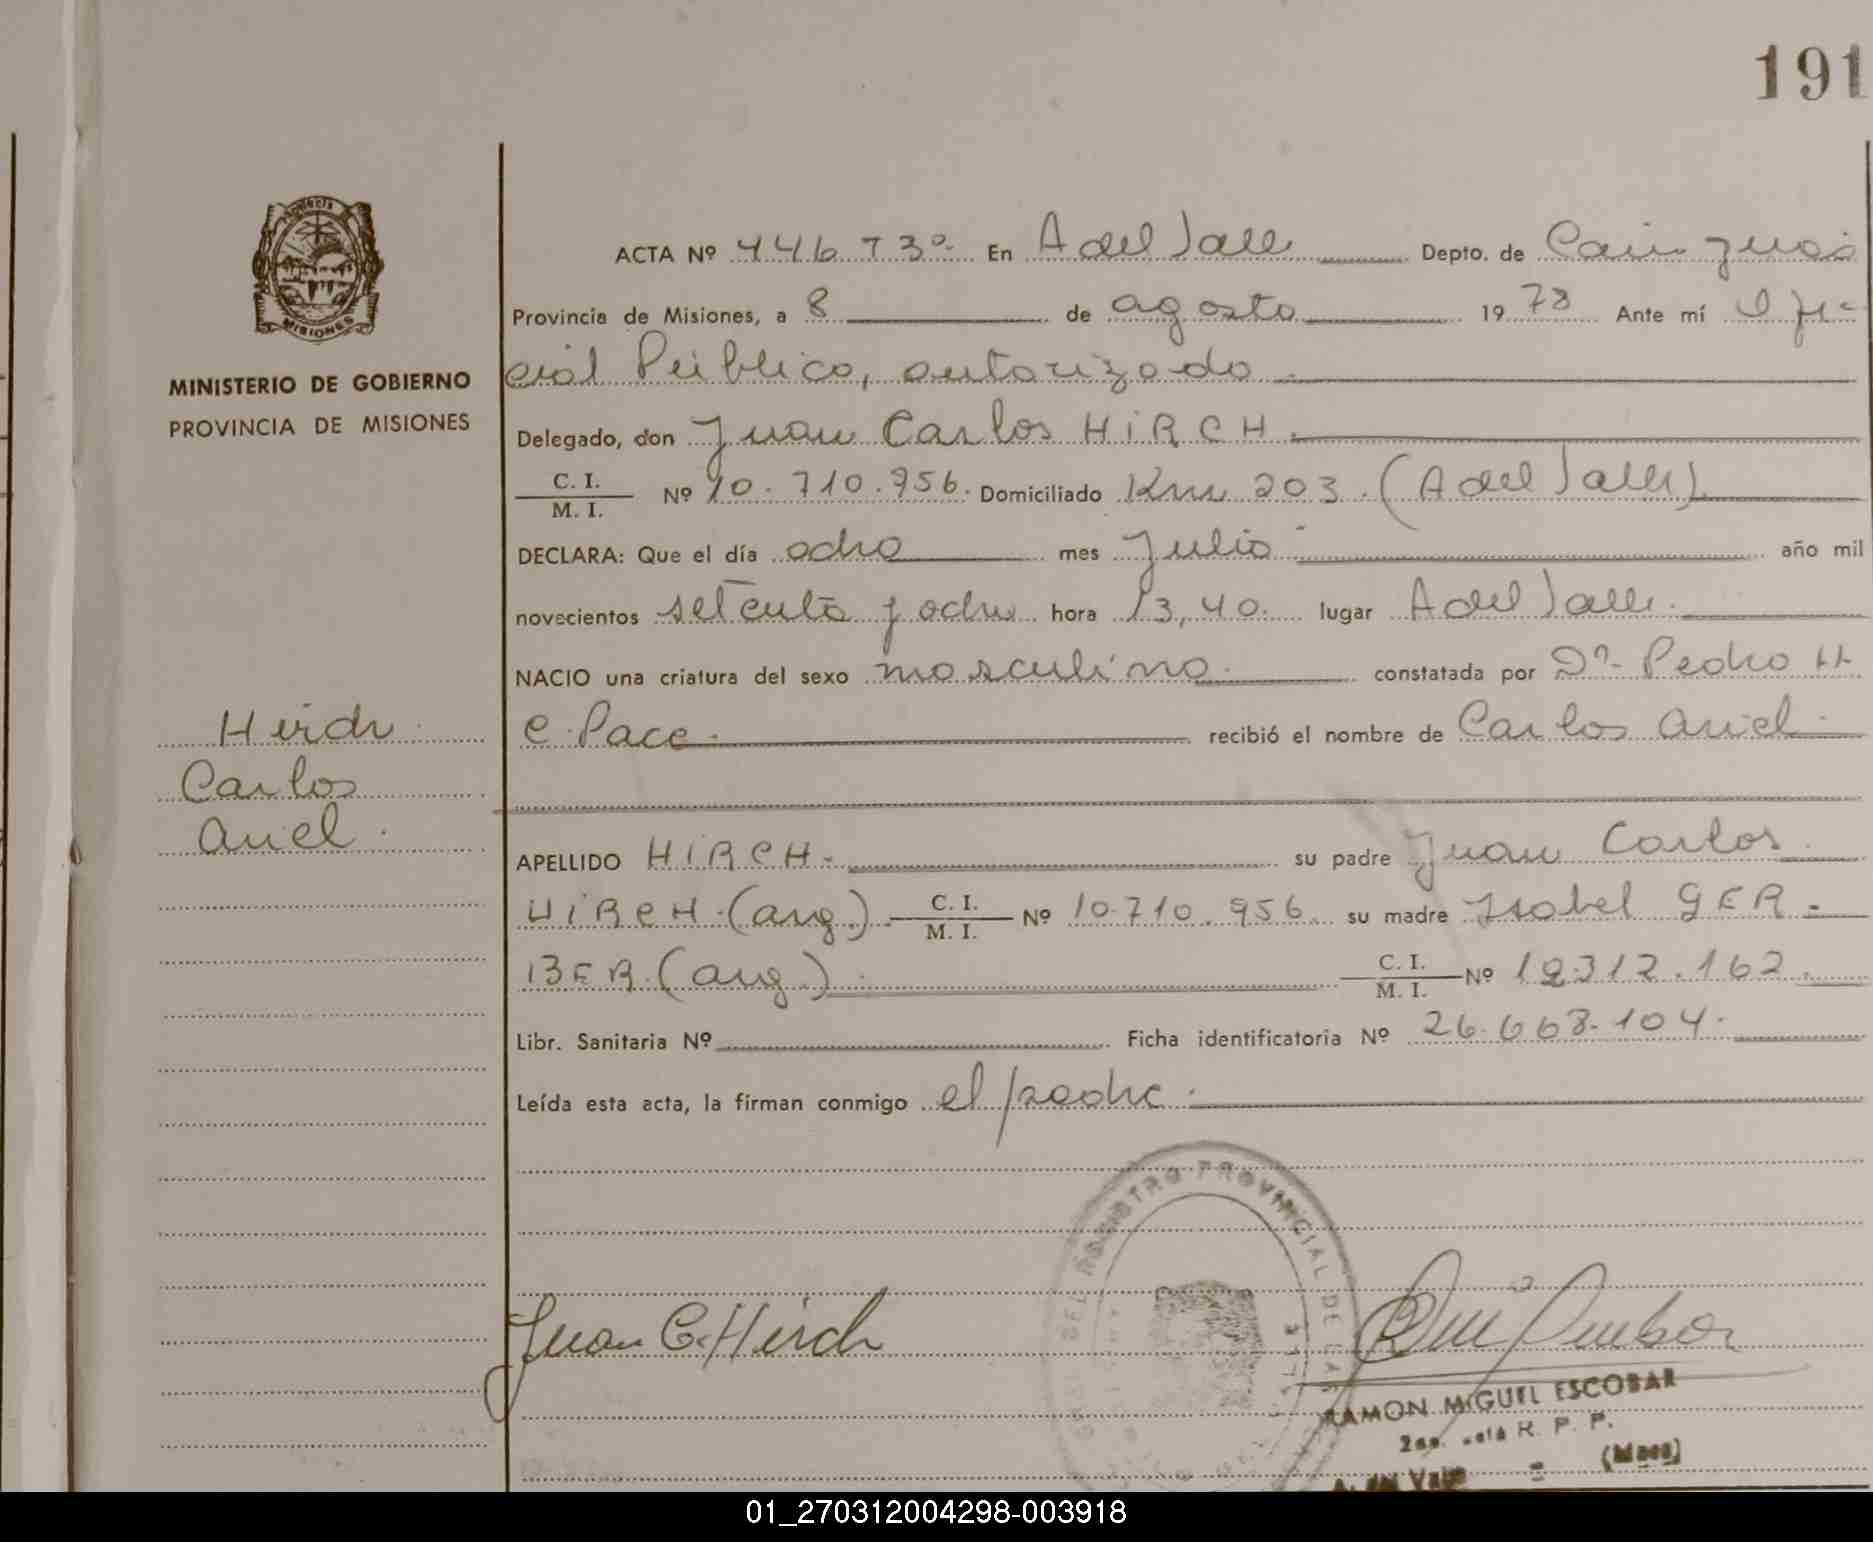 191
ACTA Nº 446 T3º En A del Valle Depto. de Cainguas
Provincia de Misiones, a 8 de agosto 1978 Ante mí Ofi-
cial Público, autorizado
Delegado, don Juan Carlos HIRCH
C. I.
M. I. Nº 10.710.956. Domiciliado Km 203. (A del Valle)
DECLARA: Que el día ocho mes Julio año mil
novecientos setenta y ocho hora 13,40. lugar A del Valle.
NACIO una criatura del sexo masculino. constatada por Dº. Pedro H
C. Pace. recibió el nombre de Carlos Ariel.
APELLIDO HIRCH. su padre Juan Carlos
HIRCH. (arg.) C. I.
M. I. Nº 10.710.956 su madre Isabel GER-
BER. (arg.) C. I.
M. I. Nº 12312.162.
Libr. Sanitaria Nº Ficha identificatoria Nº 26.668.104.
Leída esta acta, la firman conmigo el padre.
PROVINCIA
MISIONES
MINISTERIO DE GOBIERNO
PROVINCIA DE MISIONES
Hirch
Carlos
Ariel.
REGISTRO PROVINCIAL DE LAS
Juan C. Hirch
RAMON MIGUEL ESCOBAR
R. P. P.
(Mnes)
01_270312004298-003918